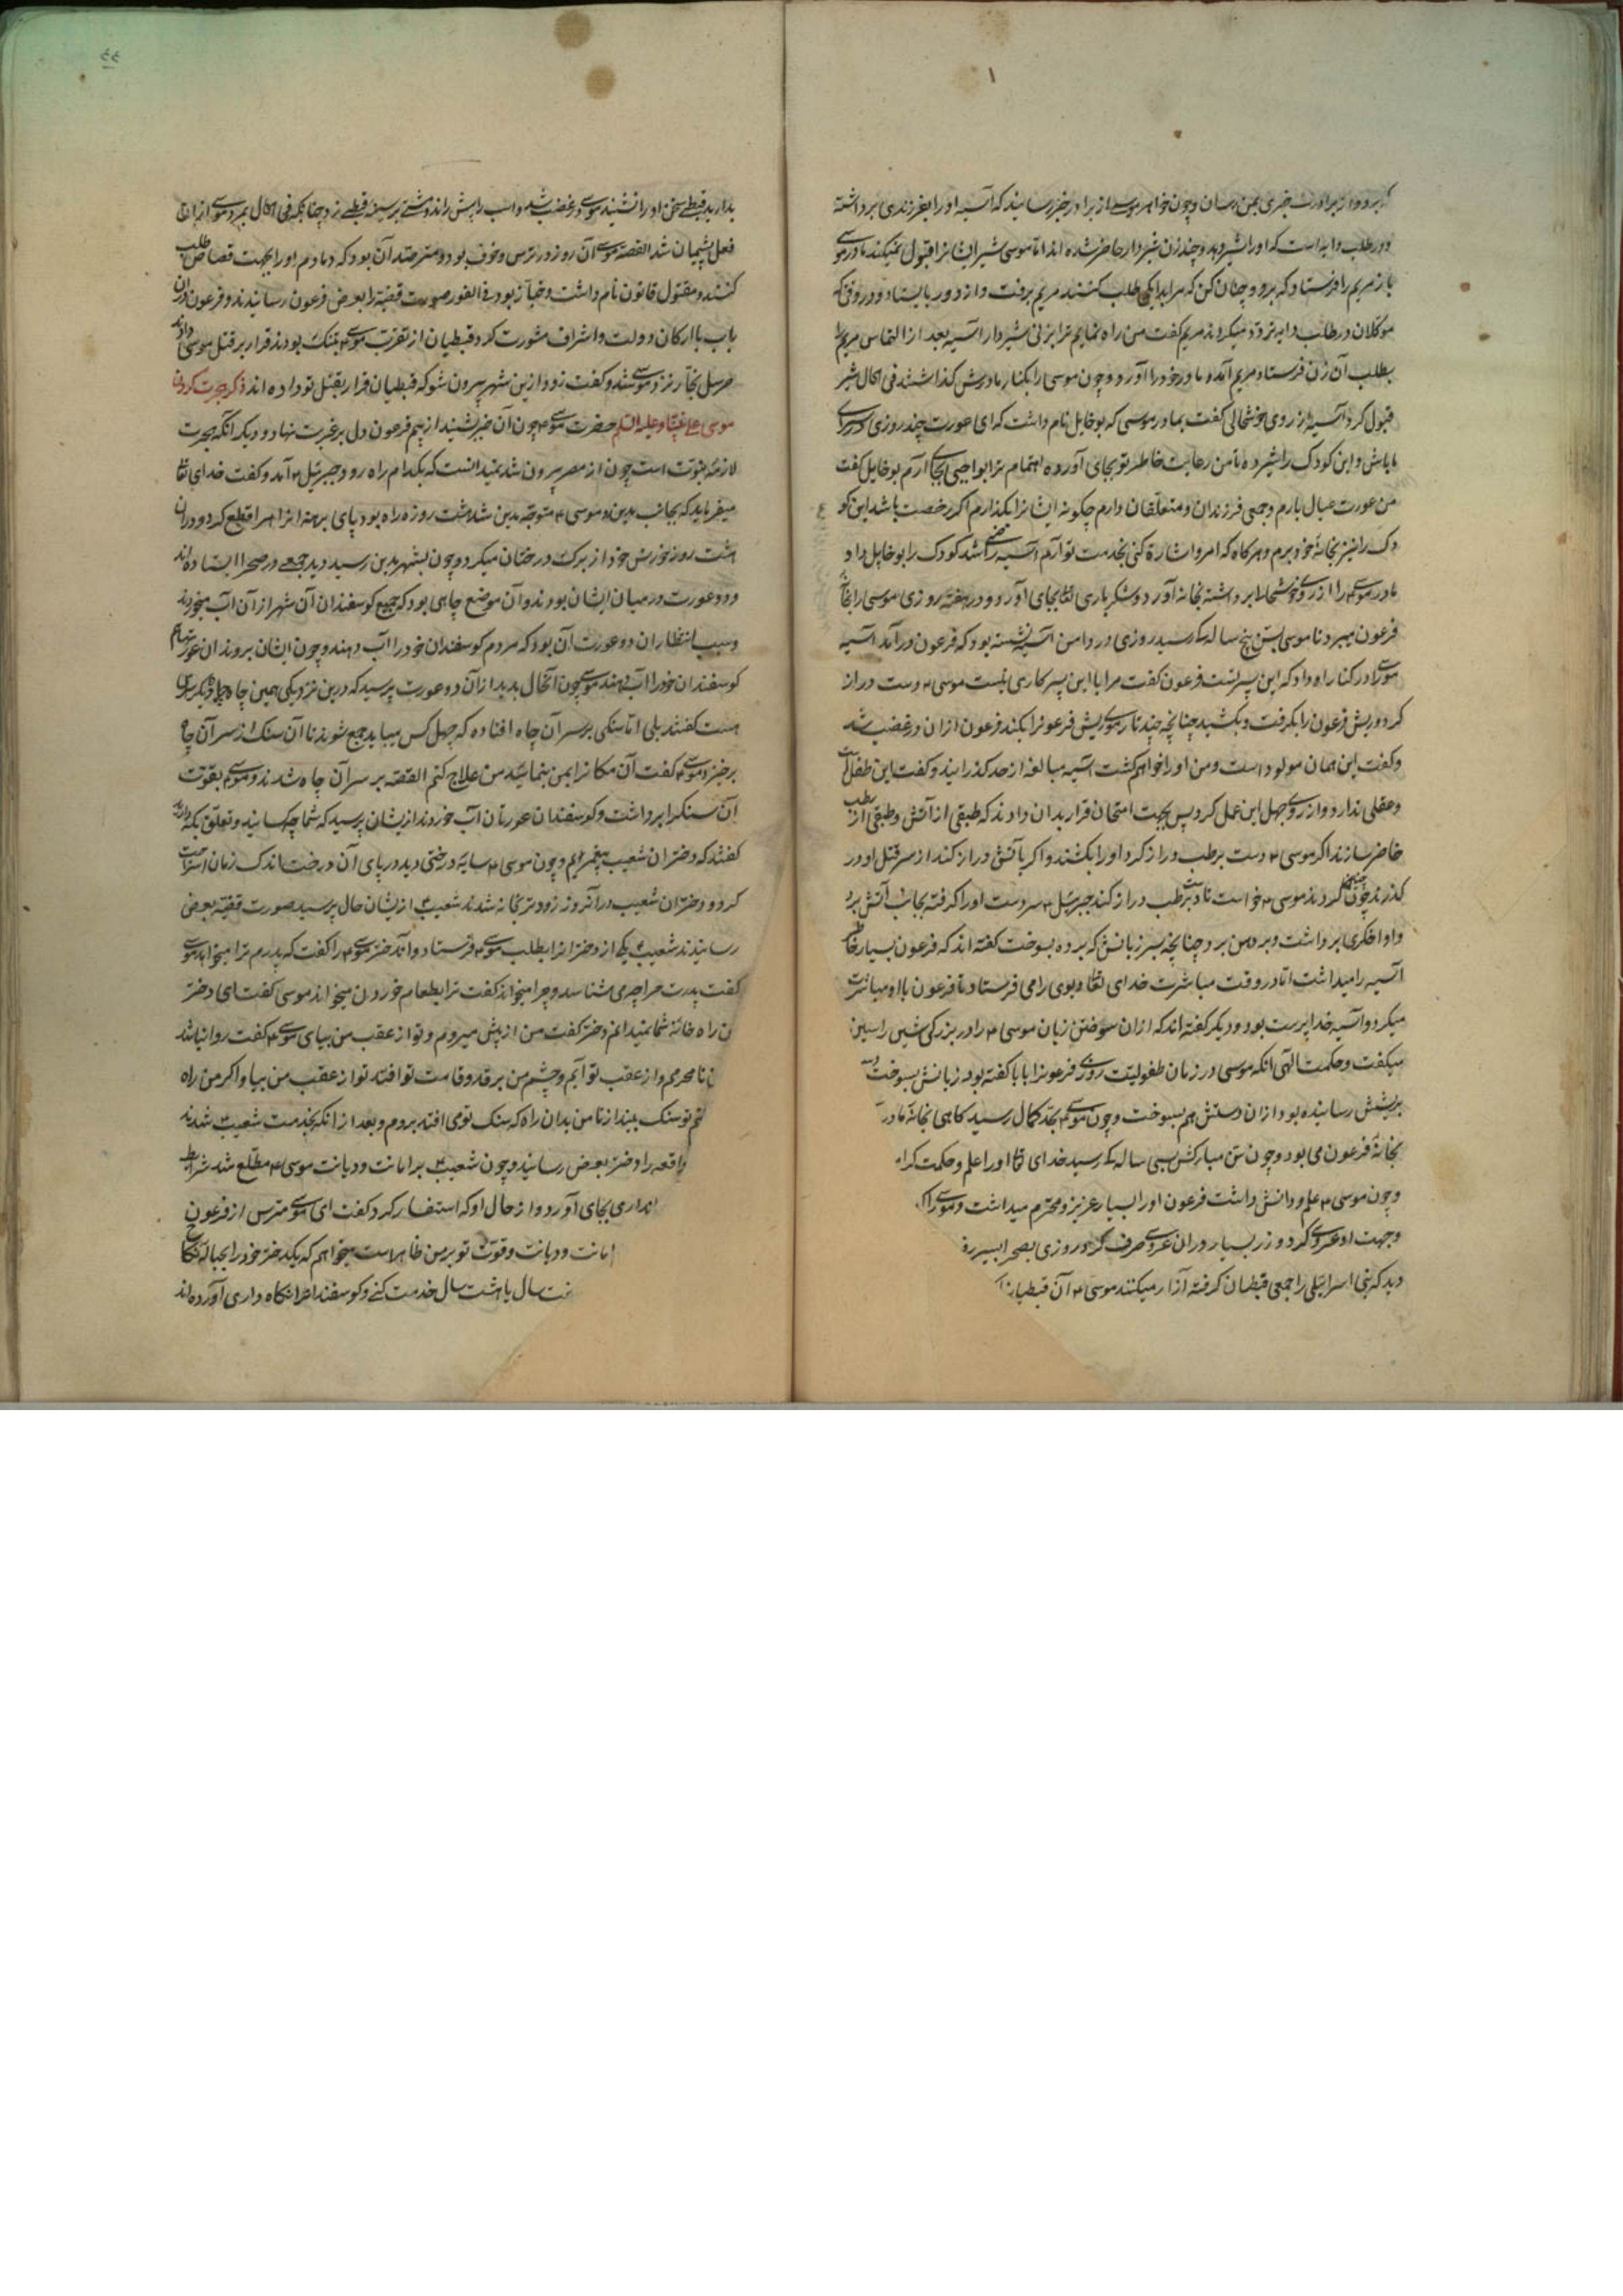 که برو و از برادرت خبری بمن رسان و چون خواهر موسی از برادر خبر رسانید که آسیه او را بفرزندی برداشته
و در طلب دایه است که او را شیر دهد و چند زن شیردار حاضر شده اند اما موسی شیر ایشانرا قبول نمیکند مادر موسی
باز مریم را فرستاد که برو و چنان کن که مرا بدایکی طلب کنند مریم برفت و از دور بایستاد و در وقتی که
موکلان در طلب دایه تردد میکردند مریم گفت من راه نمایم ترا بزنی شیردار آسیه بعد از التماس مریم را
بطلب آن زن فرستاد مریم آمد و مادر خود را آورد و چون موسی را بکنار مادرش گذاشتند فی الحال شیر
قبول کرد آسیه از روی خوشحالی گفت بمادر موسی که بوخایل نام داشت که ای عورت چند روزی در سرای
ما باش و این کودک را شیر ده تا من رعایت خاطر تو بجای آورده اهتمام ترا بواجبی بجای آرم بوخایل گفت
من عورت عیال بارم و جمعی فرزندان و متعلقان دارم چگونه ایشانرا بگذارم اگر رخصت باشد این کو
دک را نیز بخانه خود برم و هرگاه که امر و اشارة کنی بخدمت تو آرم آسیه راضی شد کودک را بوخایل داد
مادر موسی را از روی خوشحالی برداشته بخانه آورد و شکر باری تعالی بجای آورد و در هفته روزی موسی را بخانه
فرعون میبرد تا موسی بسن پنج سالگی رسید روزی در دامن آسیه نشسته بود که فرعون درآمد آسیه
موسی را در کنار او داد که این پسر تست فرعون گفت مرا با این پسر کاری نیست موسی دست دراز
کرد و ریش فرعون را بگرفت و بکشید چنانچه چند تار موی ریش فرعونرا بکند فرعون ازان در غضب شد
و گفت این همان مولود است و من او را خواهم کشت آسیه مبالغه از حد گذرانید و گفت این طفل است
و عقلی ندارد و از روی جهل این عمل کرد پس بجهت امتحان قرار بدان دادند که طبقی از آتش و طبقی از رطب
حاضر سازند اگر موسی دست برطب دراز کرد او را بکشند و اگر بآتش دراز کند از سر قتل او در
گذرند چون چنین کردند موسی خواست تا دست برطب دراز کند جبرئیل سر دست او را گرفته بجانب آتش برد
و او اخگری برداشت و بر دهن برد چنانچه سر زبانش که برده بسوخت گفته اند که فرعون بسیار خاطر
آسیه را میداشت اما در وقت مباشرت خدای تعالی دیوی را می فرستاد تا فرعون با او مباشرت
میکرد و آسیه خداپرست بود و دیگر گفته اند که ازان سوختن زبان موسی را در بزرگی شین را سین
میگفت و حکمت الهی آنکه موسی در زمان طفولیت روزی فرعونرا بابا گفته بود زبانش بسوخت و دست
بریشش رسانیده بود ازان دستش هم بسوخت و چون موسی بحد کمال رسید گاهی بخانه مادر
بخانه فرعون می بود و چون سن مبارکش بسی سالگی رسید خدای تعالی او را علم و حکمت کرا
و چون موسی علم و دانش داشت فرعون او را بسیار عزیز و محترم میداشت و موسی را
وجهت او عروسی کرد و زر بسیار دران عروسی صرف کرد روزی بصحرا بسیر
دید که بنی اسرائیلی را جمعی قبطیان گرفته آزار میکنند موسی آن قبطیانرا
٤٤
بدارید قبطی سخن او را نشنید موسی در غضب شد و اسب را پیش راند و مشتی بر سینه قبطی زد چنانکه فی الحال بمرد موسی ازان
فعل پشیمان شد القصه موسی آن روز در ترس و خوف بود و مترصد آن بود که دمادم او را بجهت قصاص طلب
کنند و مقتول قانون نام داشت و خباز بود فی الفور صورت قضیه را بعرض فرعون رسانیدند و فرعون دران
باب با ارکان دولت و اشراف مشورت کرد قبطیان از تقرب موسی بتنگ بودند قرار بر قتل موسی دادند
خرسل نجار نزد موسی شد و گفت زود ازین شهر بیرون شو که قبطیان قرار بقتل تو داده اند ذکر هجرت کردن
موسی علی نبینا و علیه السلم حضرت موسی چون آن خبر شنید از بیم فرعون دل بر غربت نهاد و دیگر آنکه هجرت
لازمه نبوت است چون از مصر بیرون شد نمیدانست که بکدام راه رود جبرئیل آمد و گفت خدای تعالی
میفرماید که بجانب مدین رو موسی متوجه مدین شد هشت روزه راه بود پای برهنه انراه را قطع کرد و دران
هشت روز خورش خود از برگ درختان میکرد و چون بشهر مدین رسید دید جمعی در صحرا ایستاده اند
و دو عورت در میان ایشان بودند و آن موضع چاهی بود که جمیع گوسفندان آن شهر از آن آب میخورند
و سبب انتظار ان دو عورت آن بود که مردم گوسفندان خود را آب دهند و چون ایشان بروند ان عورتها هم
گوسفندان خود را آب دهند موسی چون آنحال بدید از آن دو عورت پرسید که درین نزدیکی همین چاه چاه دیگری
هست گفتند بلی اما سنگی بر سر آن چاه افتاده که چهل کس میباید جمع شوند تا آن سنگ از سر آن چاه
برخیزد موسی گفت آن مکانرا بمن بنمائید من علاج کنم القصه بر سر آن چاه شدند و موسی بقوت
آن سنگرا برداشت و گوسفندان عورتان آب خوردند ازیشان پرسید که شما چه کسانید و تعلق بکه دارید
گفتند که دختران شعیب پیغمبریم و چون موسی سایه درختی دید در پای آن درخت اندک زمان استراحت
کرد و دختران شعیب در آنروز زودتر بخانه شدند شعیب ازیشان حال پرسید صورت قضیه بعرض
رسانیدند شعیب یکی از دخترانرا بطلب موسی فرستاد و آندختر موسی را گفت که پدرم ترا میخواند موسی
گفت پدرت مرا چه می شناسد و چرا میخواند گفت ترا بطعام خوردن میخواند موسی گفت ای دختر
من راه خانه شما نمیدانم دختر گفت من از پیش میروم و تو از عقب من بیای موسی گفت روا نباشد
نا محرمم و از عقب تو آیم و چشم من بر قد و قامت تو افتد تو از عقب من بیا و اگر من راه
تو سنگ بینداز تا من بدان راه که سنگ تو می افتد بروم و بعد از انکه بخدمت شعیب شدند
واقعه را دختر بعرض رسانید و چون شعیب بر امانت و دیانت موسی مطلع شد شرایط
انداری بجای آورد و از حال او که استفسار کرد گفت ای موسی مترس از فرعون
امانت و دیانت و قوت تو بر من ظاهر است میخواهم که یکدختر خود را بحباله نکاح
سال یا هشت سال خدمت کنی و گوسفندان مرا نگاه داری آورده اند